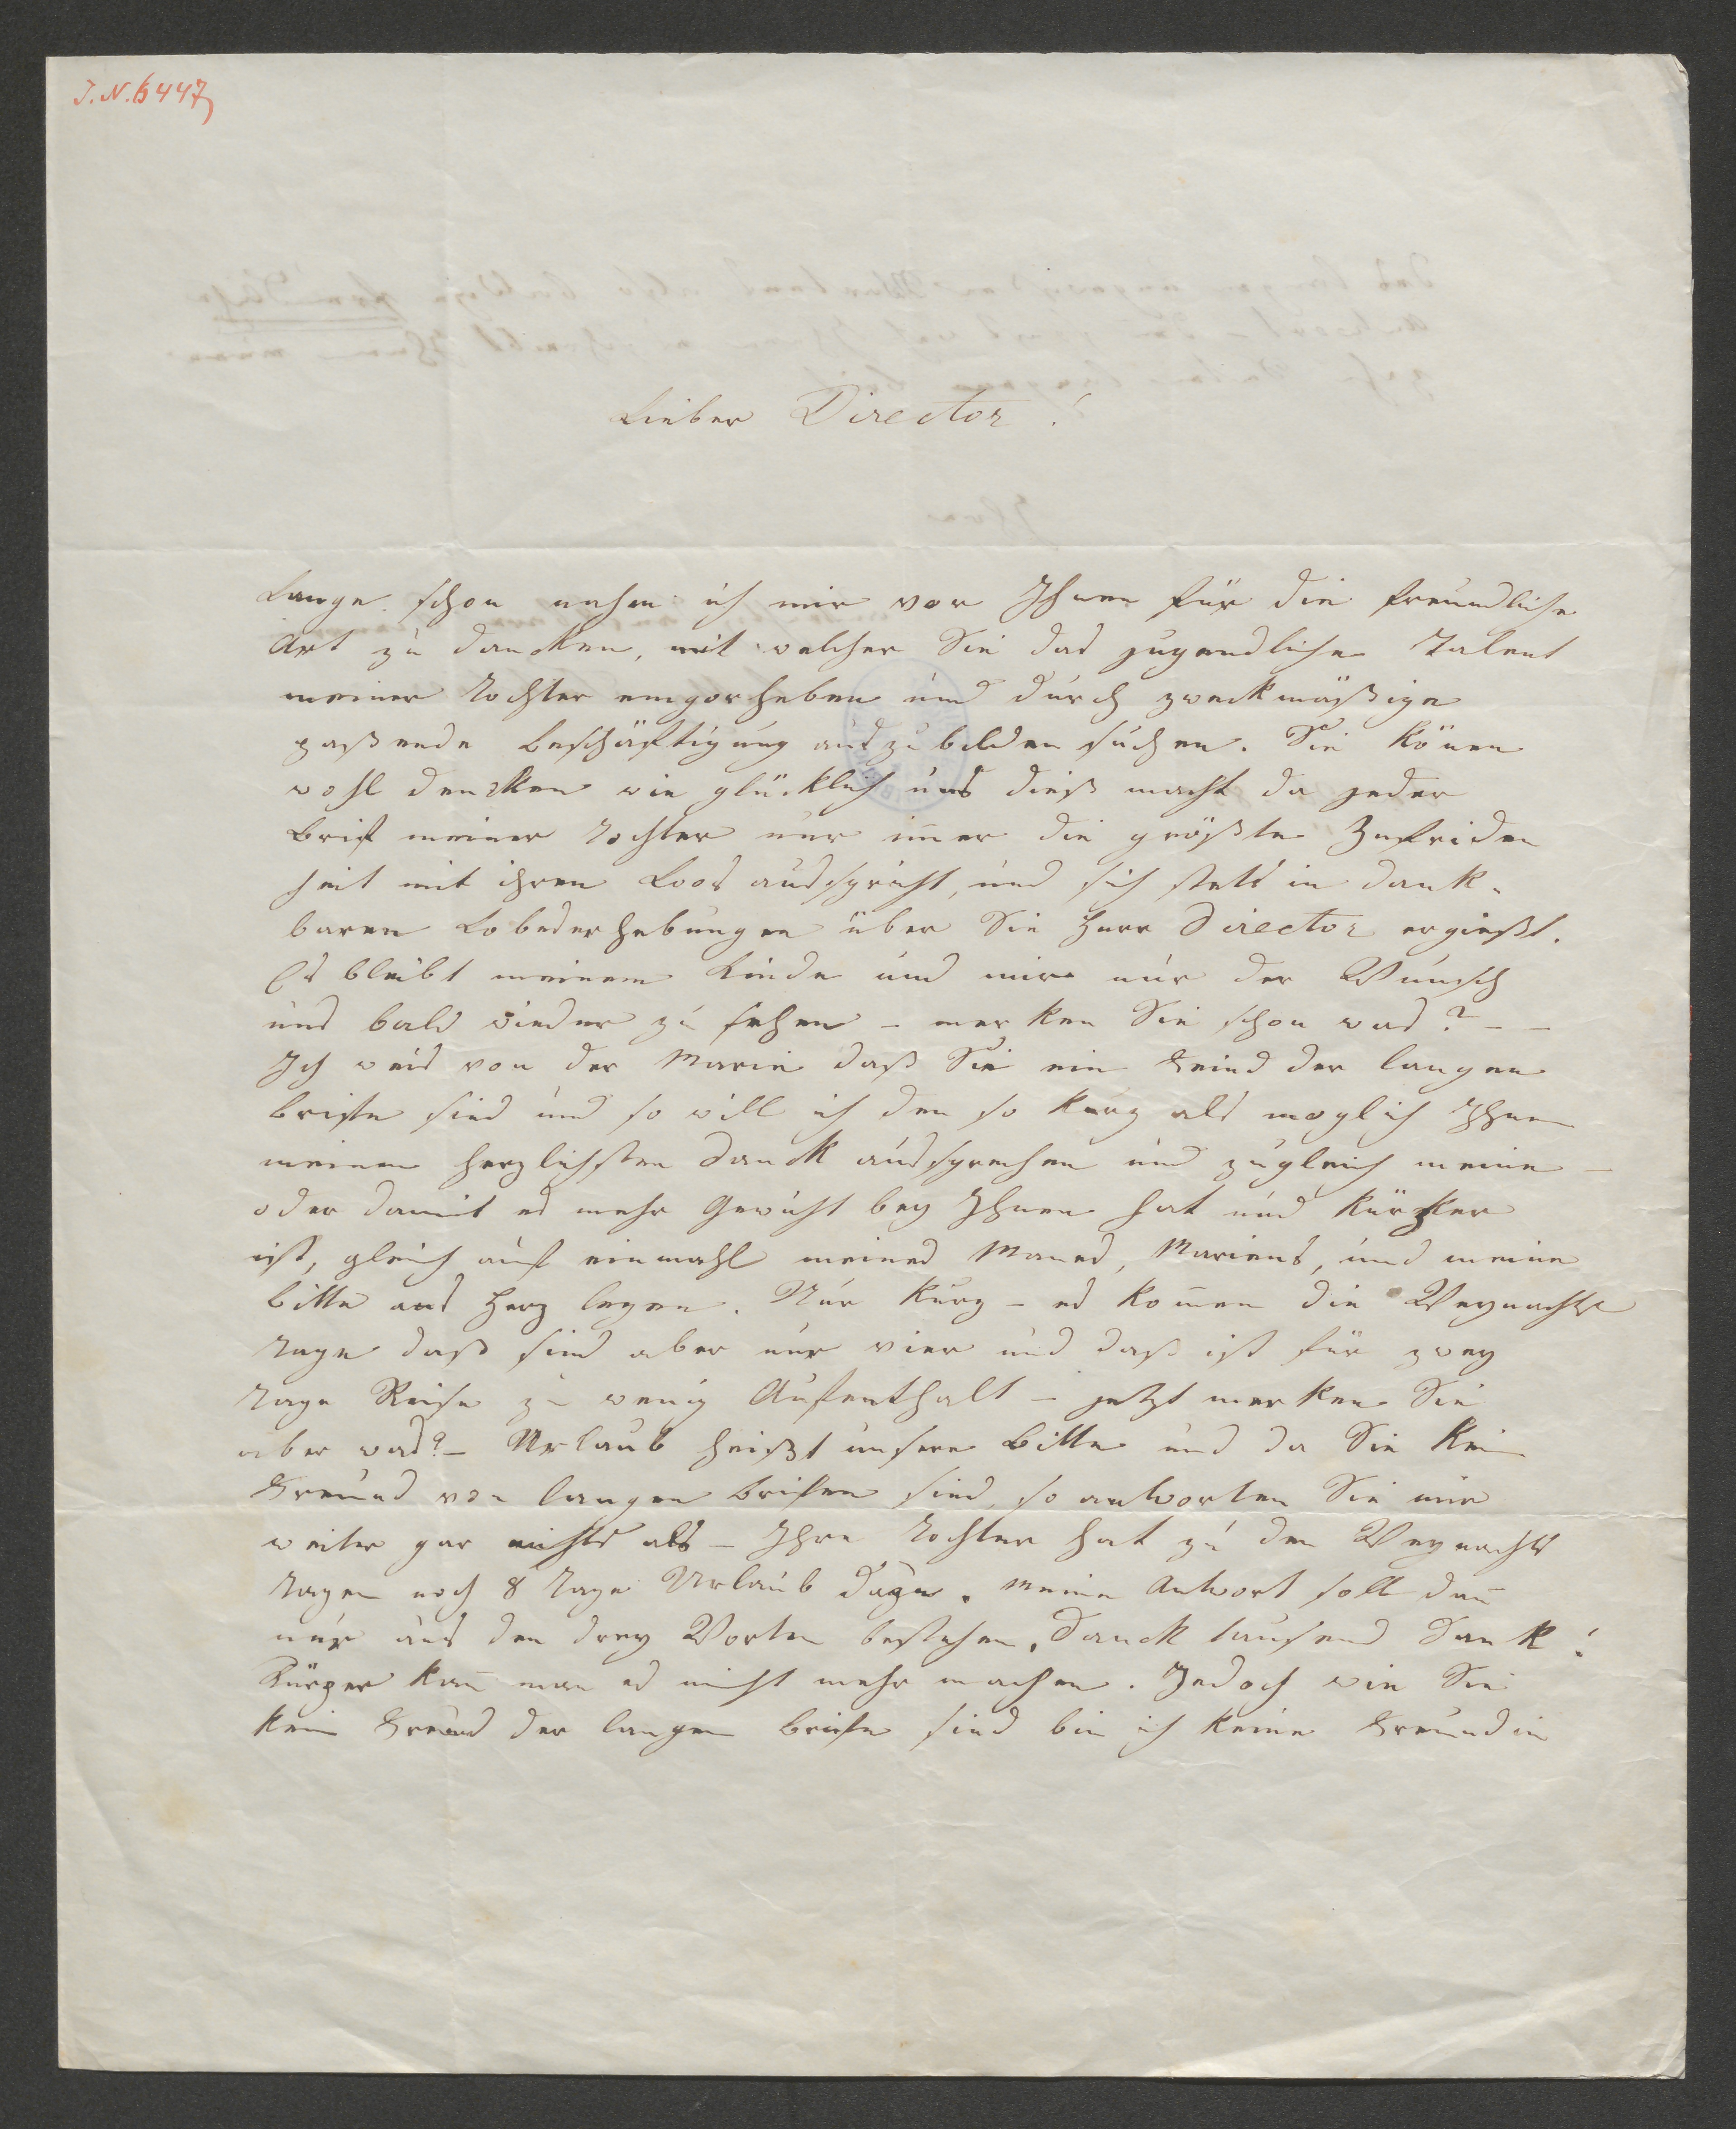 J.N. 6447
Lieber Director!
Lange schon nahm ich mir vor Ihnen für die freundliche
Art zu dancken, mit welcher Sie das jugendliche Talent
meiner Tochter emporheben und durch zweckmäßige
paßende Beschäftigung auszubilden suchen. Sie könen
wohl dencken wie glücklich uns dieß macht da jeder
Brif meiner Tochter nur imer die größte Zufriden
heit mit ihren Loos ausspricht, und sich stets in dank-
baren Lobeserhebungen über Sie Herr Director ergießt.
Es bleibt meinem Kinde und mir nur der Wunsch
uns bald wieder zu sehen – merken Sie schon was? – –
Ich weis von der Marie daß Sie ein Feind der langen
Brife sind und so will ich den so kurz als moglich Ihnen
meinen herzlichsten Danck aussprechen und zugleich meine –
oder damit es mehr Gewicht bey Ihnen hat und kürzer
ist, gleich auf einmahl meines Manes, Mariens, und meine
Bitte ans Herz legen. Nur kurz – es komen die Weynachts
Tage daß sind aber nur vier und daß ist für zwey
Tage Reise zu wenig Aufenthalt – jetzt merken Sie
aber was? – Urlaub heißt unsere Bitte und da Sie kein
Freund von langen Brifen sind, so antworten Sie mir
weiter gar nichts als – Ihre Tochter hat zu den Weynachts
Tagen noch 8 Tage Urlaub dazu. Meine Antwort soll dan
nur aus den drey Worten bestehen, Danck tausend Dank!
Kürzer kan man es nicht mehr machen. Jedoch wie Sie
kein Freund der langen Briefe sind bin ich keine Freundin